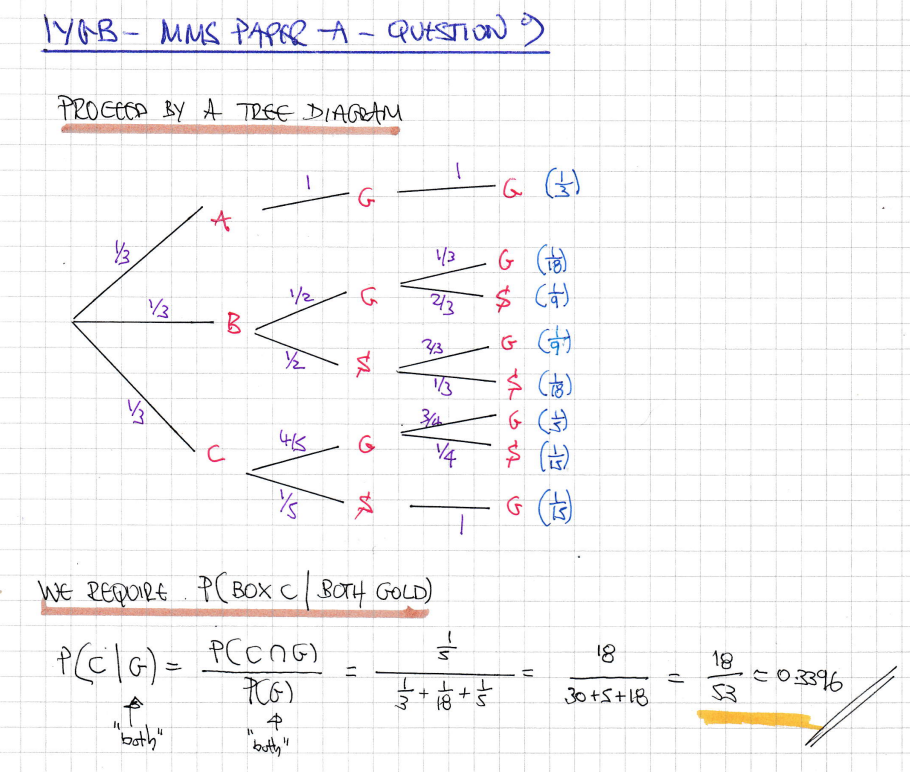 IYGB - MMS PAPER A - QUESTION 9
PROCEED BY A TREE DIAGRAM
1 G 1 G (1/3)
A
1/3
1/3 G (1/18)
1/2 G 2/3 $ (1/9)
1/3 B
1/2 $ 2/3 G (1/9)
1/3 $ (1/18)
1/3
3/4 G (1/5)
C 4/5 G 1/4 $ (1/15)
1/5 $ 1 G (1/15)
WE REQUIRE P(BOX C | BOTH GOLD)
P(C|G) = P(C∩G) / P(G) = 1/5 / (1/3 + 1/18 + 1/5) = 18 / (30+5+18) = 18/53 ≈ 0.3396
"both" "both"